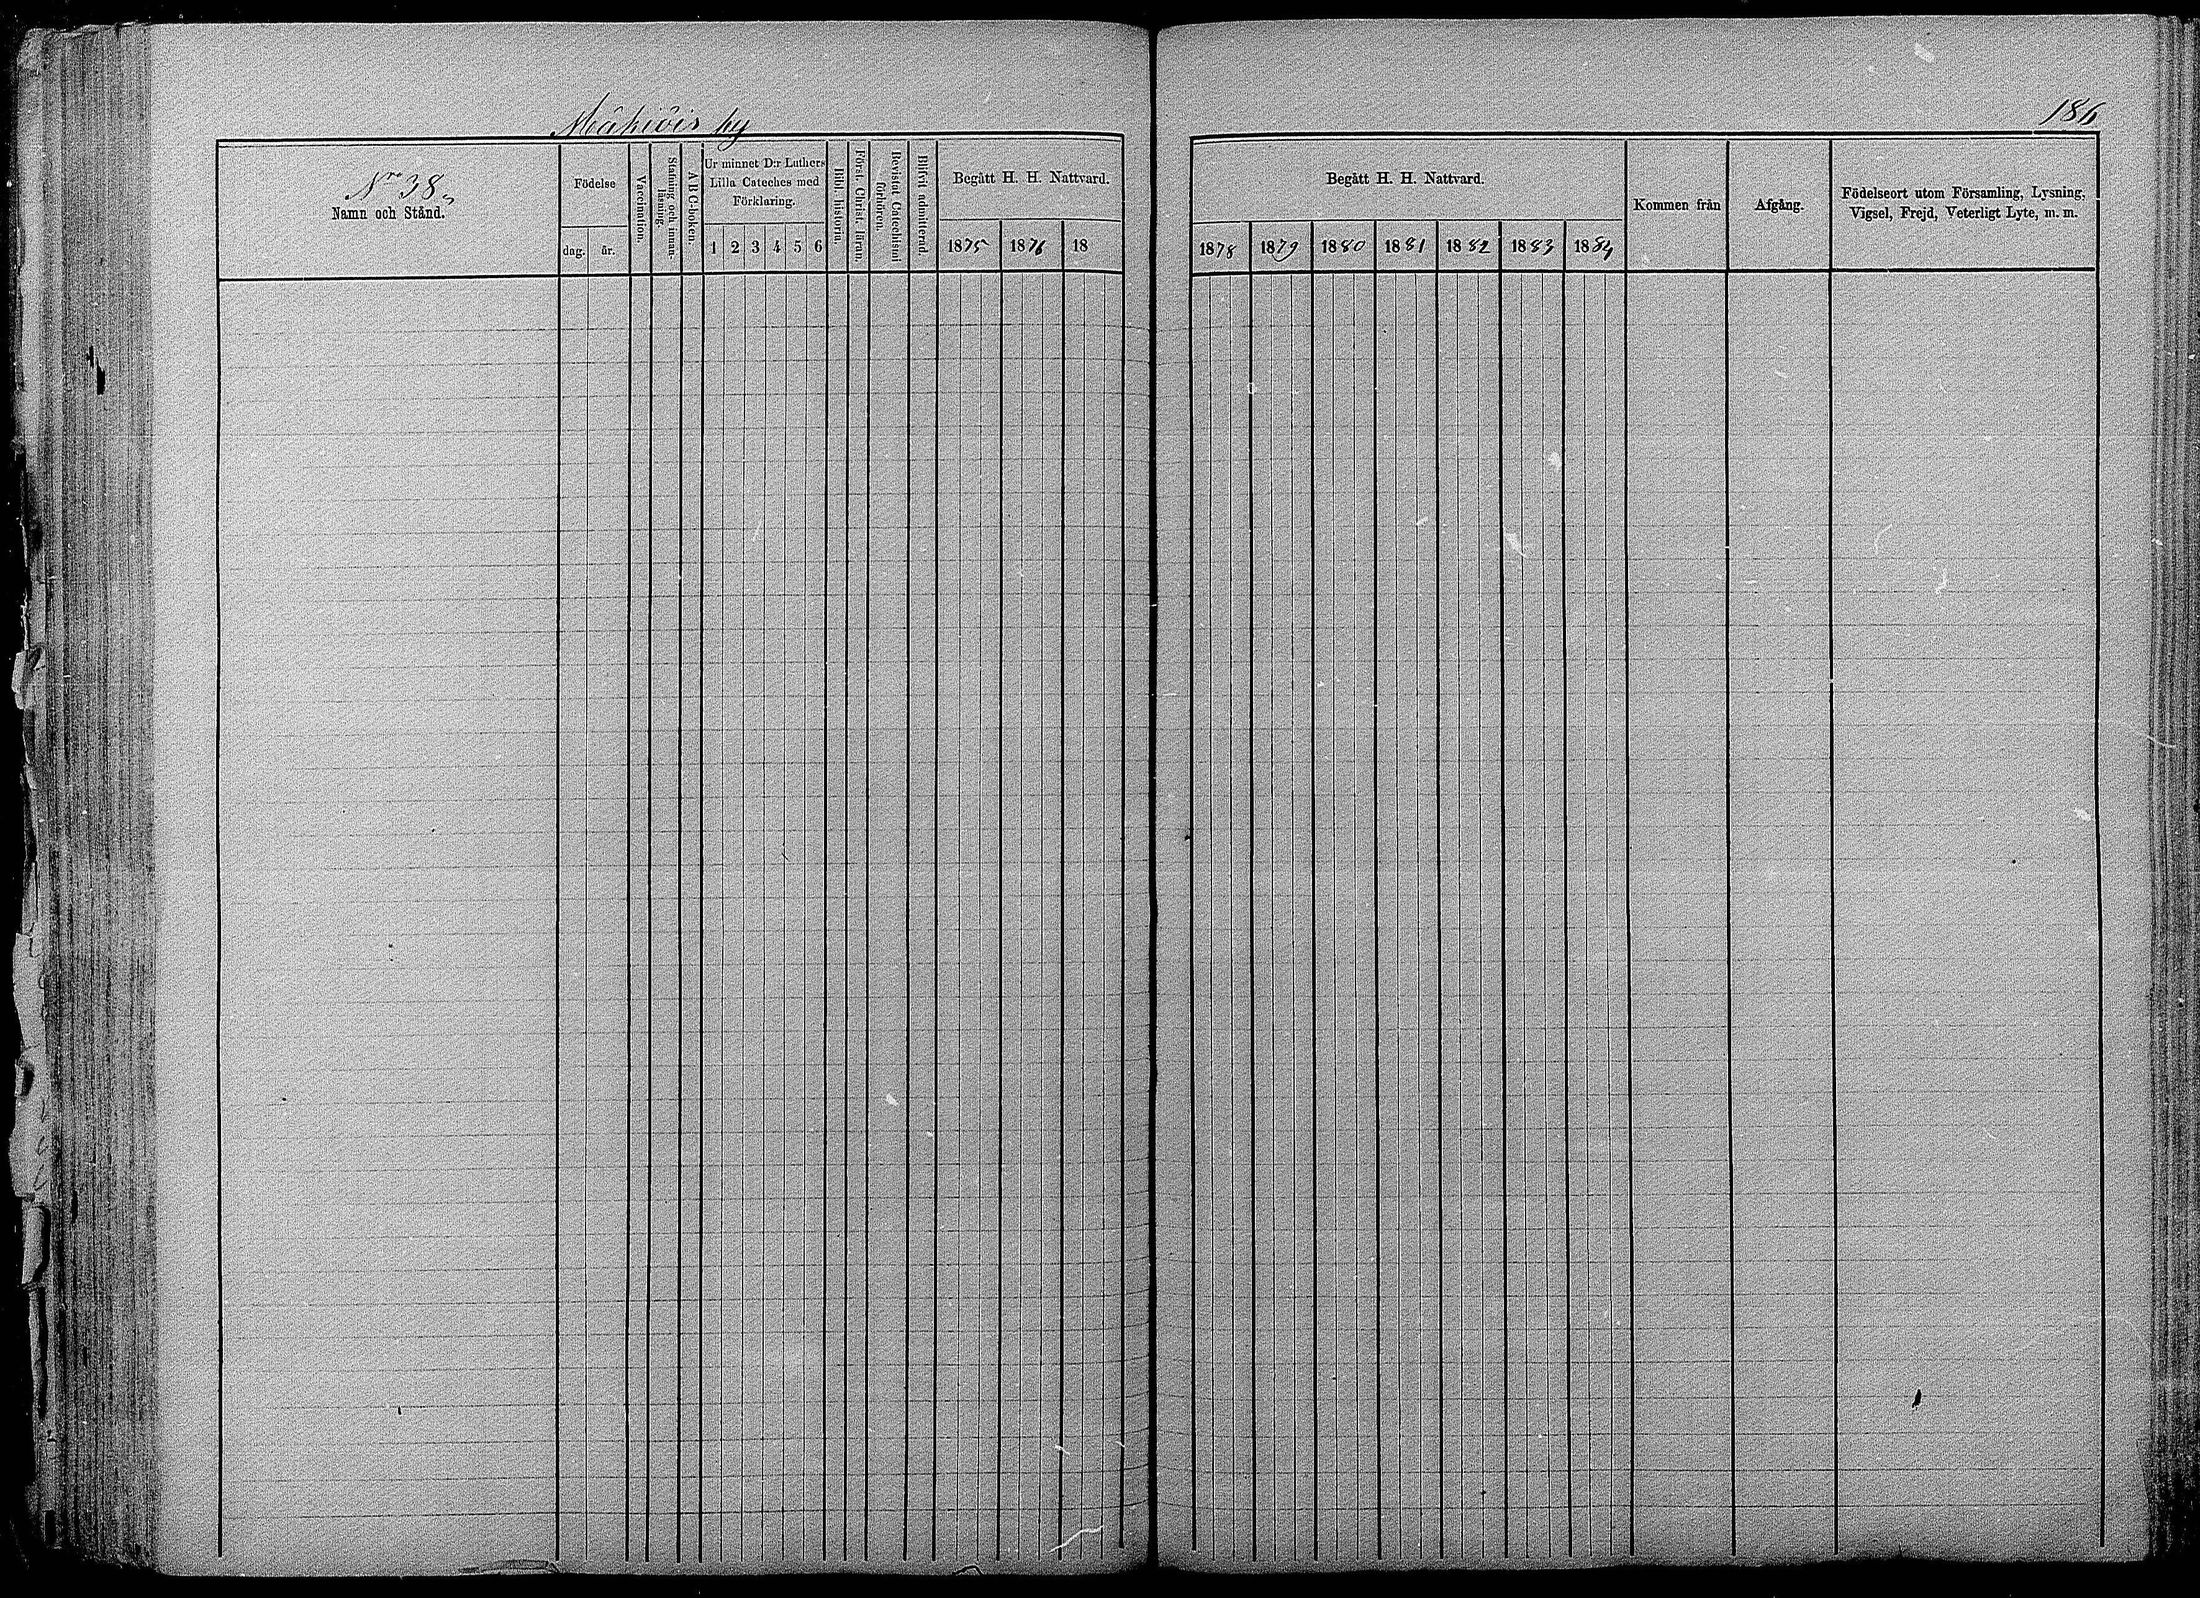 Mäkiöis by
186
Nro 38.
Namn och Stånd.
Födelse
dag. år.
Vaccination.
Stafning och innan-
läsning.
A B C-boken.
Ur minnet D:r Luthers
Lilla Cateches med
Förklaring.
1 2 3 4 5 6
Bibl. historia.
Först. Christ. läran.
Bevistat Catechismi
förhören.
Blifvit admitterad.
Begått H. H. Nattvard.
1875 1876 18
Begått H. H. Nattvard.
1878 1879 1880 1881 1882 1883 1884
Kommen från
Afgång.
Födelseort utom Församling, Lysning,
Vigsel, Frejd, Veterligt Lyte, m. m.